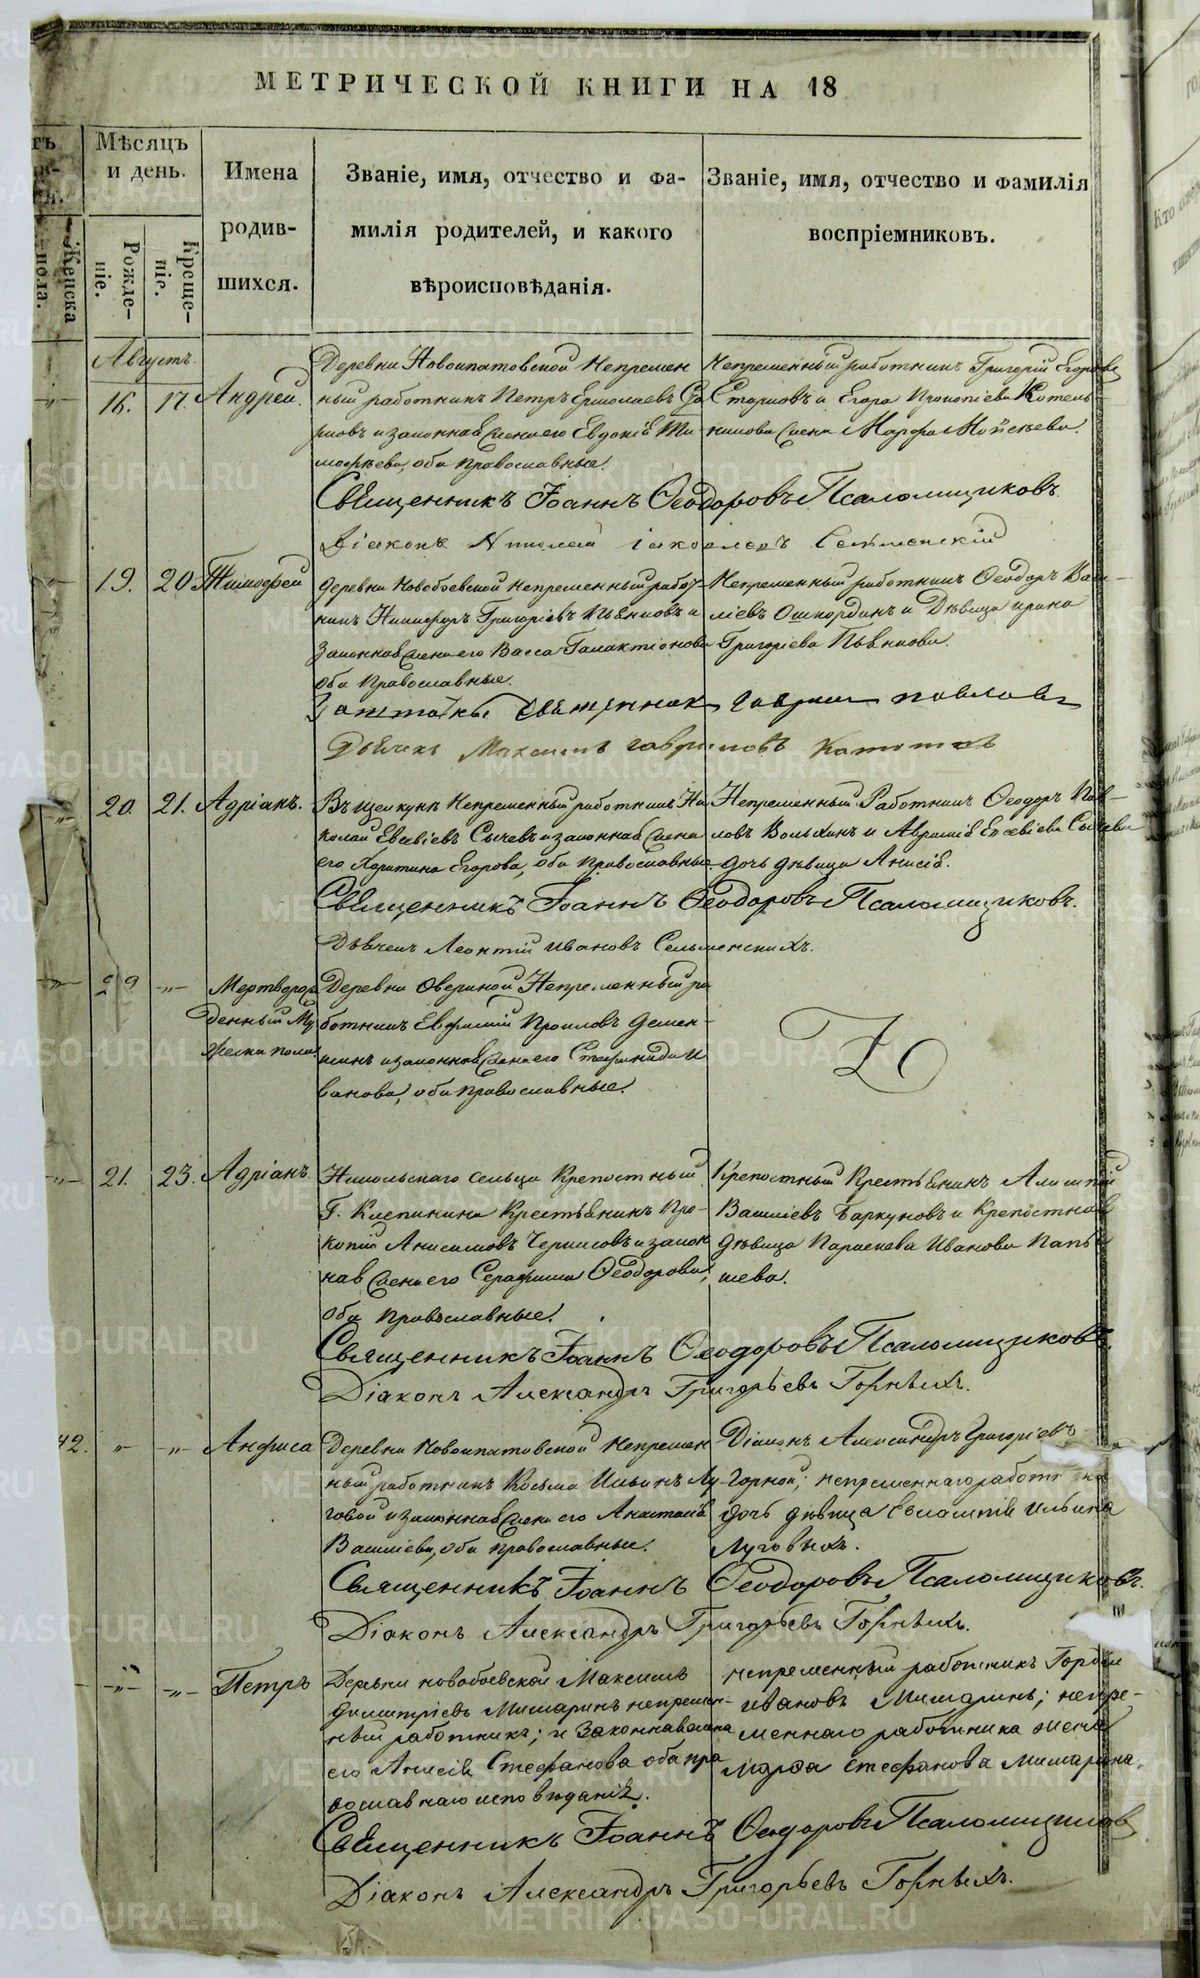 МЕТРИЧЕСКОЙ КНИГИ НА 18
Мѣсяцъ
и день.
Женска
пола.
Рожде-
ніе.
Креще-
ніе.
Имена
родив-
шихся.
Званіе, имя, отчество и фа-
милія родителей, и какого
вѣроисповѣданія.
Званіе, имя, отчество и фамилія
воспріемниковъ.
Августъ.
16. 17. Андрей.
Деревни Новоипатовской Непремен
ный работникъ Петръ Ермолаевъ
и законная жена его Евдокія Ти
мофѣева, оба православные.
Непременный работникъ Григорій Егоровъ
и Егора Прокопіева Котель-
никова жена Марфа Мойсѣева.
Священникъ Іоаннъ Ѳеодоровъ Псаломщиковъ.
Діаконъ Николай Іаковлевъ
19. 20. Тимофей
деревни Новобоевской непременный работ-
никъ Никифоръ Григоріевъ Пьянковъ и
законная жена его Васса Галактіонова
оба православные.
Непременный работникъ Ѳеодоръ Васи-
ліевъ и Дѣвица Ирина
Григоріева Пьянкова.
Заштатный священникъ Гавриилъ Павловъ
Дьячекъ Максимъ Гавриловъ
20. 21. Адріанъ.
Въ Щелкунѣ Непременный работникъ Ни
колай Евсевіевъ Сычевъ и законная жена
его Харитина Егорова, оба православные.
Непременный Работникъ Ѳеодоръ Пав-
ловъ и Евсевіева Сычева
дочь дѣвица Анисія.
Священникъ Іоаннъ Ѳеодоровъ Псаломщиковъ.
Дьячекъ Леонтій Ивановъ Сельменскихъ.
29 -"- Мертворож
денный Му
жеска пола
Деревни Аверинской Непременный ра
ботникъ Евфимій Демен-
и законная жена его Стефанида И
ванова, оба православные.
21. 23. Адріанъ.
Никольскаго сельца Крепостный
Г. Клепинина Крестьянинъ Про-
копій Анисимовъ и закон
ная жена его Серафима Ѳеодорова,
оба православные.
Крепостный Крестьянинъ
Василіевъ Баркуновъ и Крепостная
дѣвица Параскева Иванова
шева.
Священникъ Іоаннъ Ѳеодоровъ Псаломщиковъ.
Діаконъ Александръ Григорьевъ Горныхъ.
42. -"- -"- Анфиса
Деревни Новоипатовской Непремен
ный работникъ Козьма Ильинъ Лу-
говой и законная жена его Анастасія
Василіева, оба православные.
Діаконъ Александръ Григоріевъ
Горной; непременнаго работ
дочь дѣвица Евлампія Ильина
Луговыхъ.
Священникъ Іоаннъ Ѳеодоровъ Псаломщиковъ.
Діаконъ Александръ Григорьевъ Горныхъ.
-"- -"- Петръ
Деревни новобоевской Максимъ
Димитріевъ Мишаринъ непремен-
ный работникъ; и законная жена
его Анисія Стефанова оба пра
вославнаго исповѣданія.
непременный работникъ Гордей
Ивановъ Мишаринъ; непре-
меннаго работника жена
Марѳа Стефанова Мишарина.
Священникъ Іоаннъ Ѳеодоровъ Псаломщиковъ
Діаконъ Александръ Григорьевъ Горныхъ.
METRIKI.GASO-URAL.RU